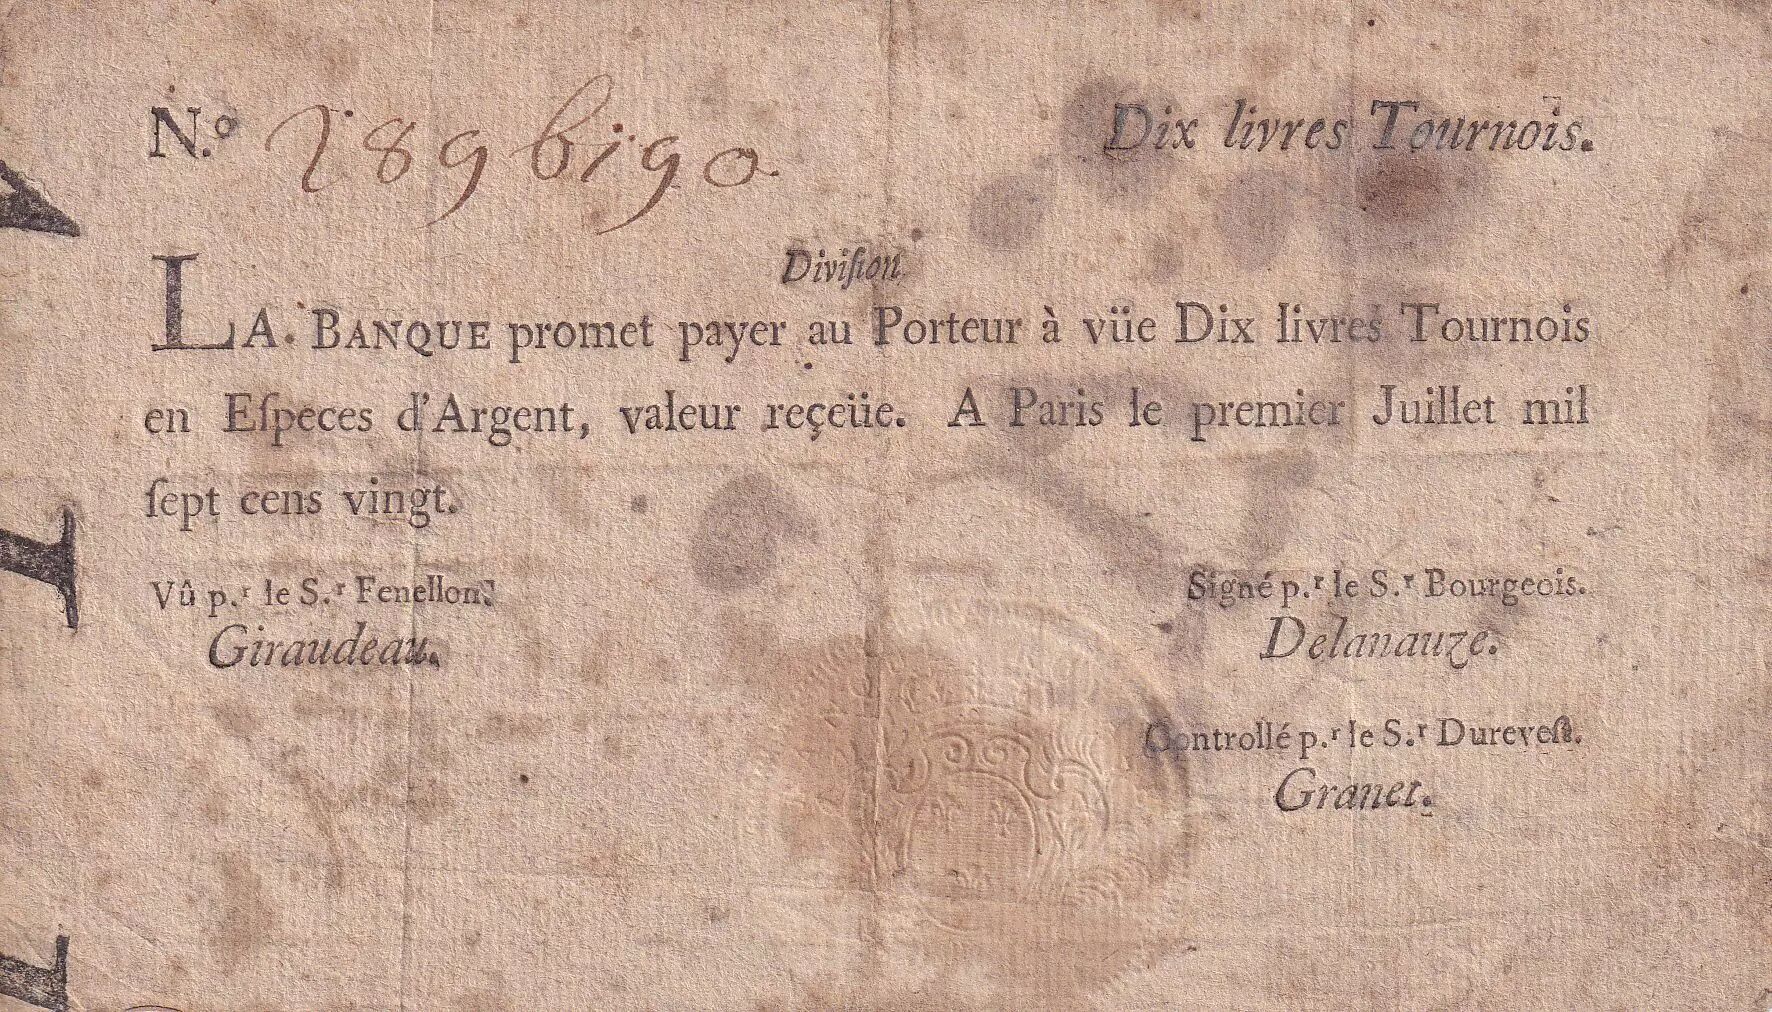 N.º 1896190
Dix livres Tournois.
Diviſion
LA BANQUE promet payer au Porteur à vüe Dix livres Tournois
en Eſpeces d'Argent, valeur reçeüe. A Paris le premier Juillet mil
ſept cens vingt.
Vû p.r le S.r Fenellon.
Giraudeau.
Signé p.r le S.r Bourgeois.
Delanauze.
Controllé p.r le S.r Dureveſt.
Granet.